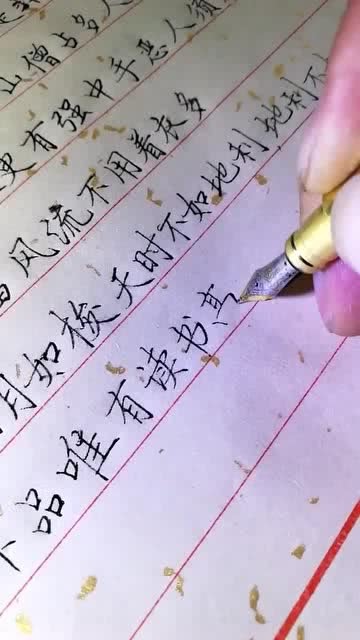 山僧占多人
更有强中手恶人须
风流不用着衣多
月如梭天时不如地利地利不
下品唯有读书